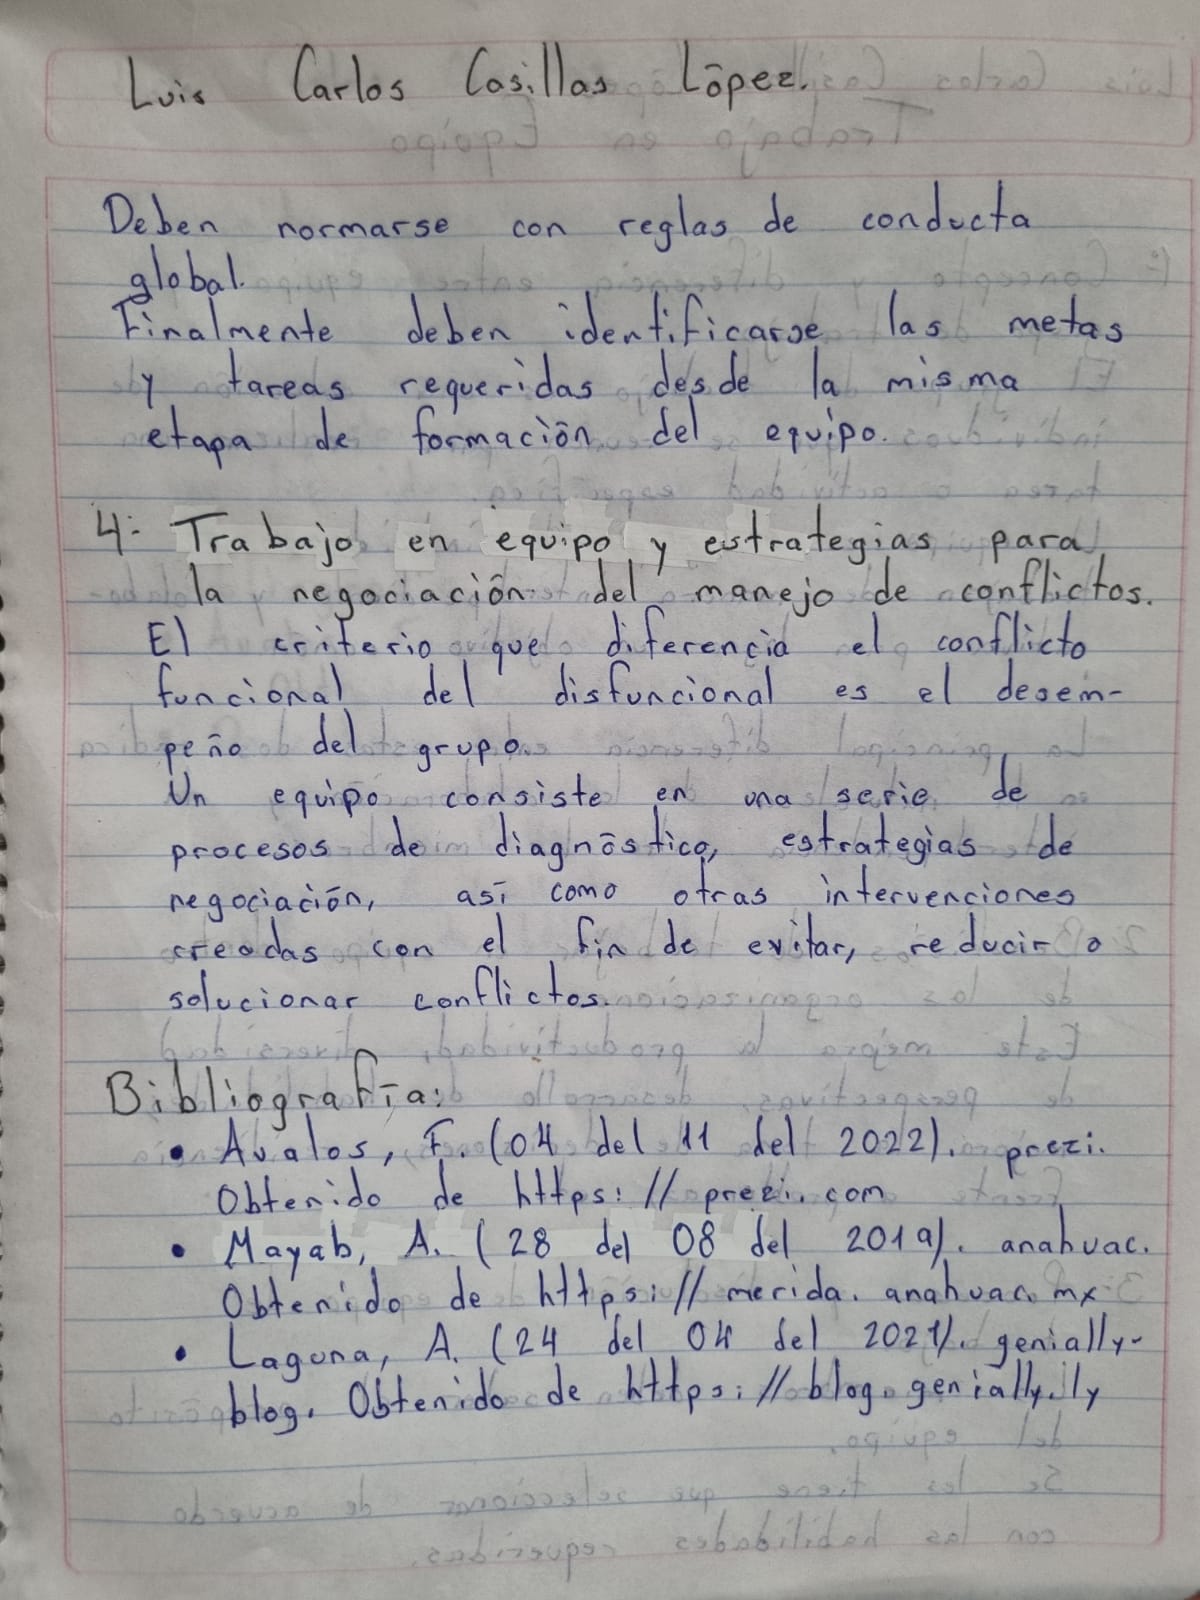 Luis Carlos Casillas López.
Deben normarse con reglas de conducta
global.
Finalmente deben identificarse las metas
y tareas requeridas desde la misma
etapa de formación del equipo.
4.- Trabajo en equipo y estrategias para
la negociación del manejo de conflictos.
El criterio que diferencia el conflicto
funcional del disfuncional es el desem-
peño del grupo.
Un equipo consiste en una serie de
procesos de diagnóstico, estrategias de
negociación, así como otras intervenciones
creadas con el fin de evitar, reducir o
solucionar conflictos.
Bibliografía:
• Avalos, F. (04 del 11 del 2022). prezi.
Obtenido de https://prezi.com
• Mayab, A. (28 del 08 del 2019). anahuac.
Obtenido de https://merida.anahuac.mx
• Laguna, A. (24 del 04 del 2021). genially-
blog. Obtenido de https://blog.genially.ly